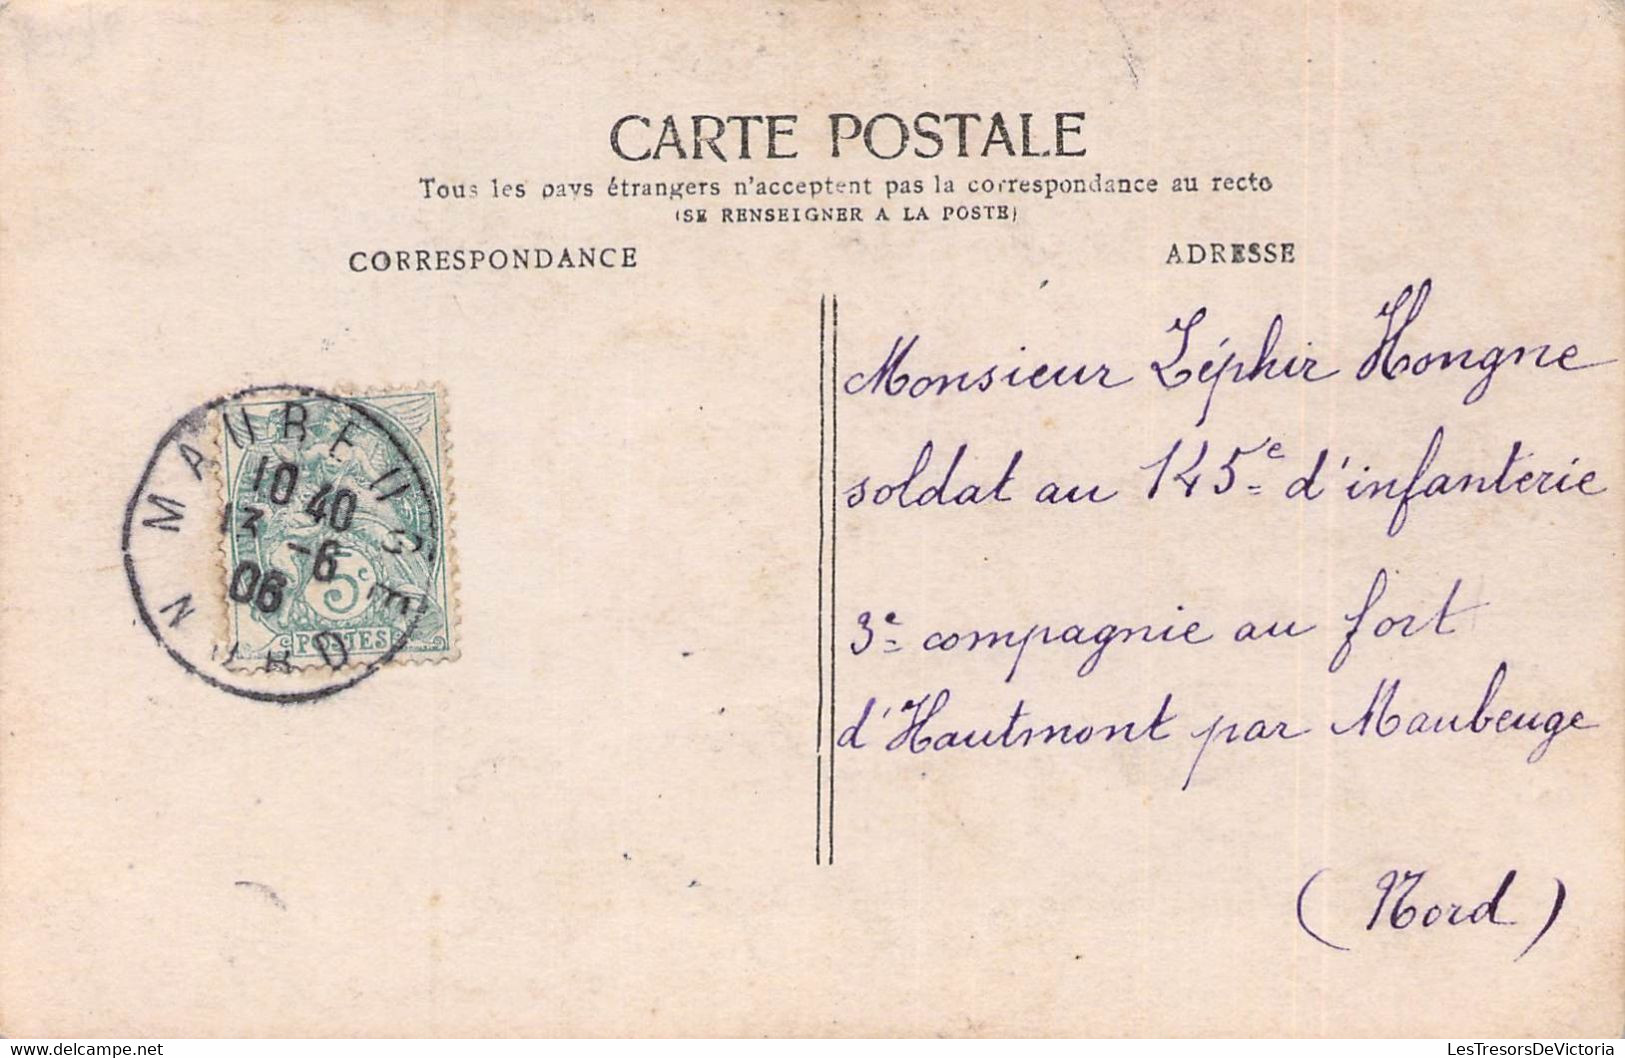 CARTE POSTALE
Tous les pays étrangers n'acceptent pas la correspondance au recto
(SE RENSEIGNER A LA POSTE)
CORRESPONDANCE
ADRESSE
Monsieur Zéphir Hongne
soldat au 145e d'infanterie
3e compagnie au fort
d'Hautmont par Maubeuge
(Nord)
MAUBEUGE
10 40
13 -6
06
NORD
5c
POSTES
LesTresorsDeVictoria